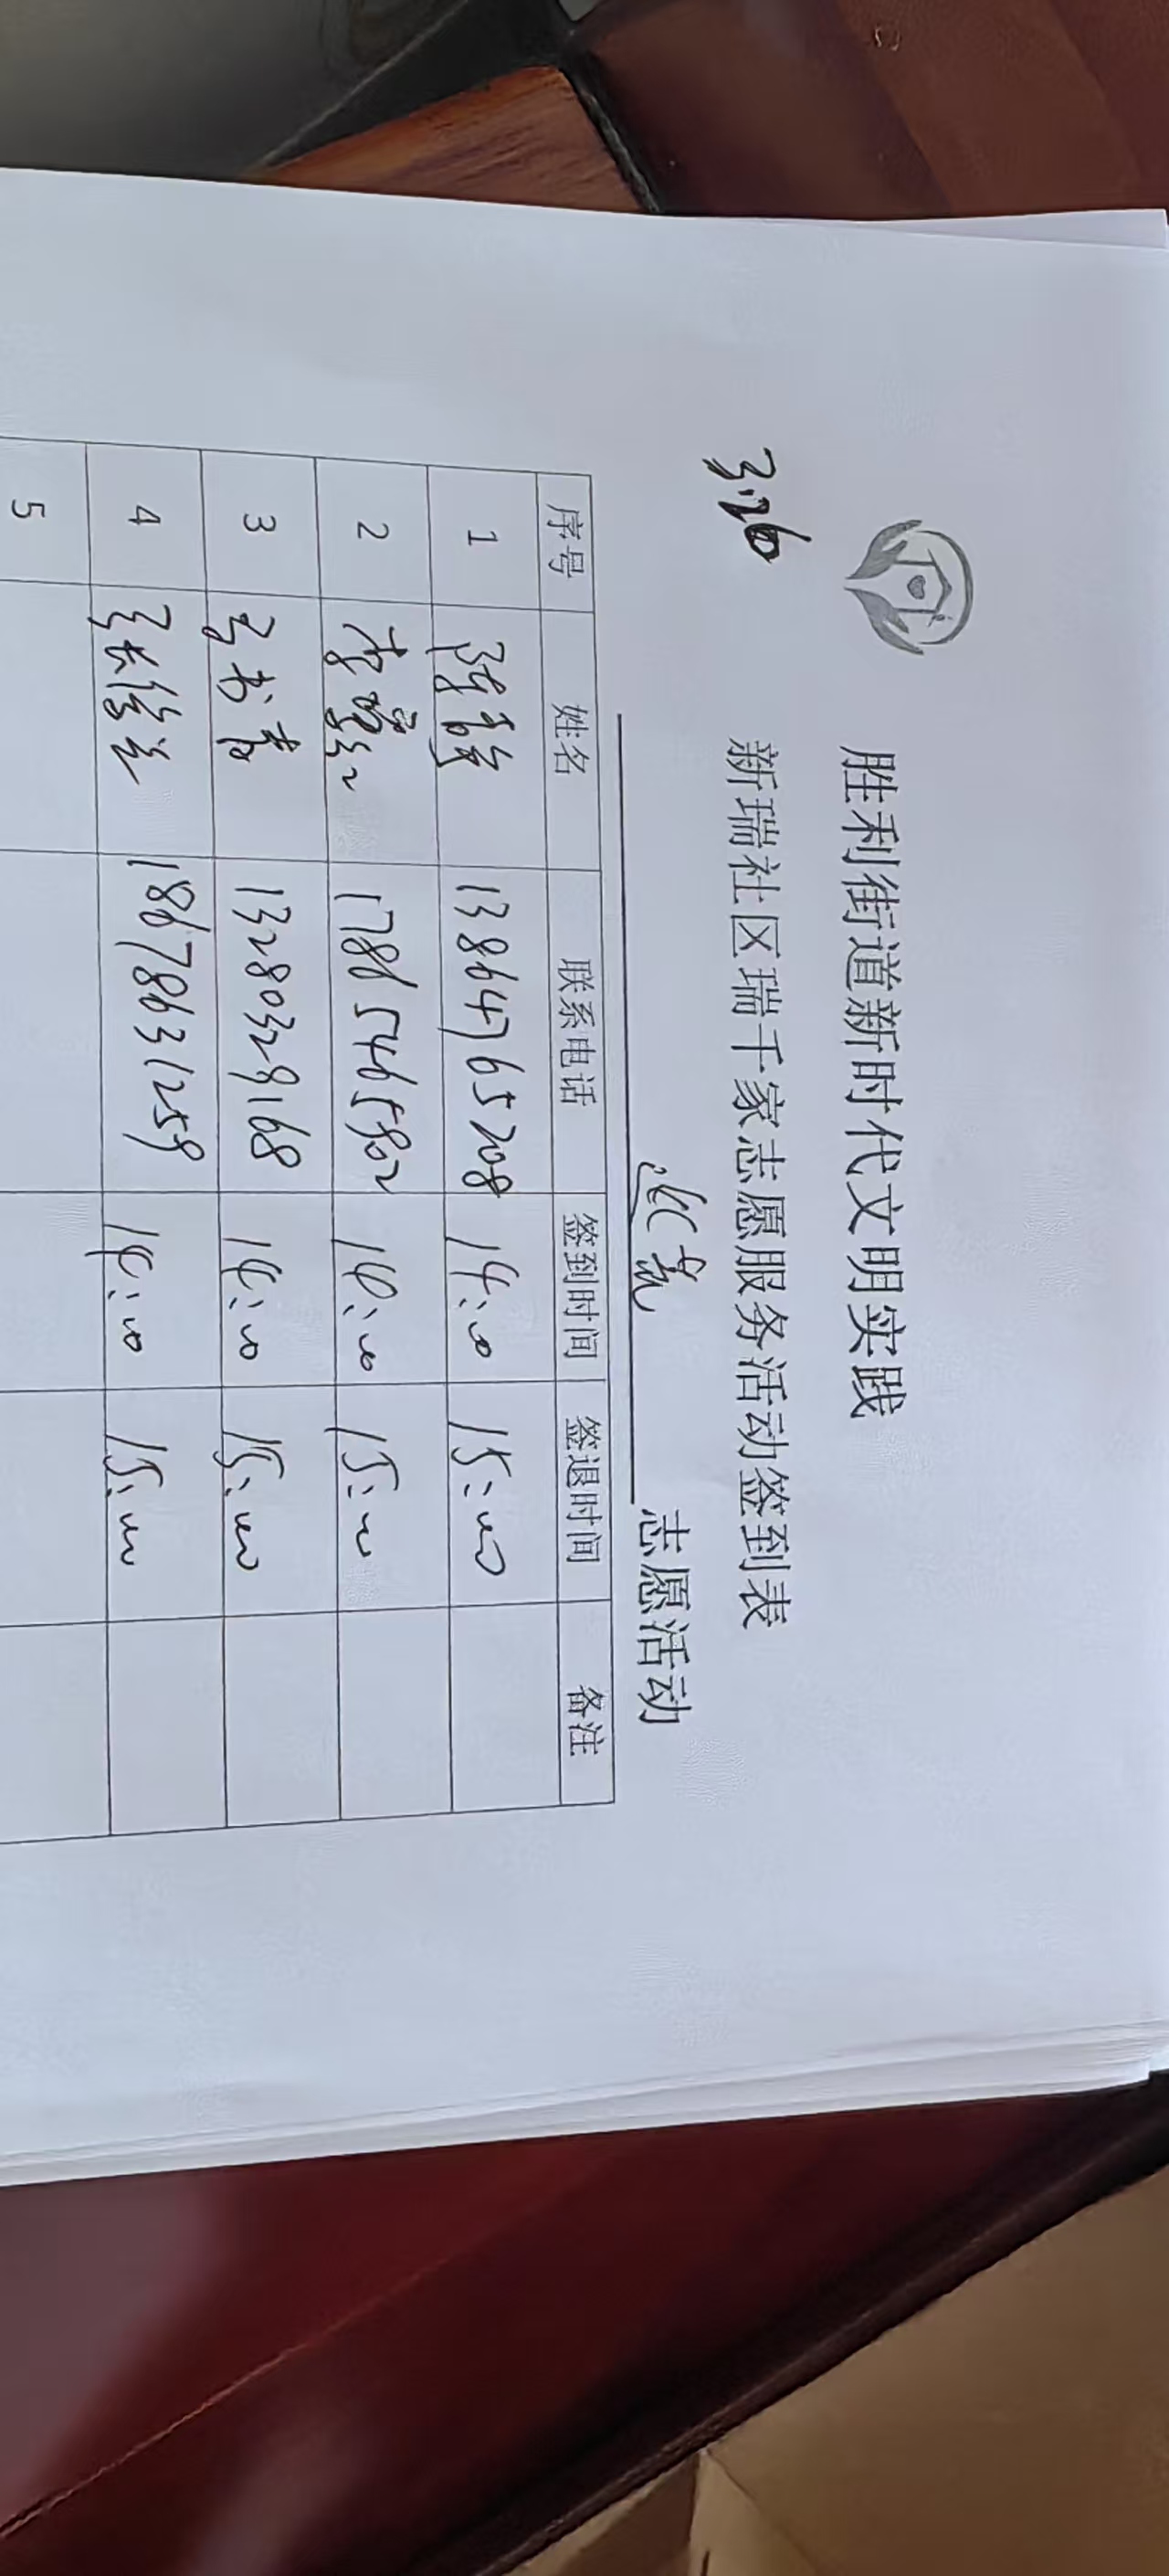 胜利街道新时代文明实践
3.26
新瑞社区瑞千家志愿服务活动签到表
志愿活动
序号 姓名 联系电话 签到时间 签退时间 备注
1 13864765208 14:00 15:00
2 17865465802 14:00 15:00
3 13280329168 14:00 15:00
4 18678631259 14:00 15:00
5